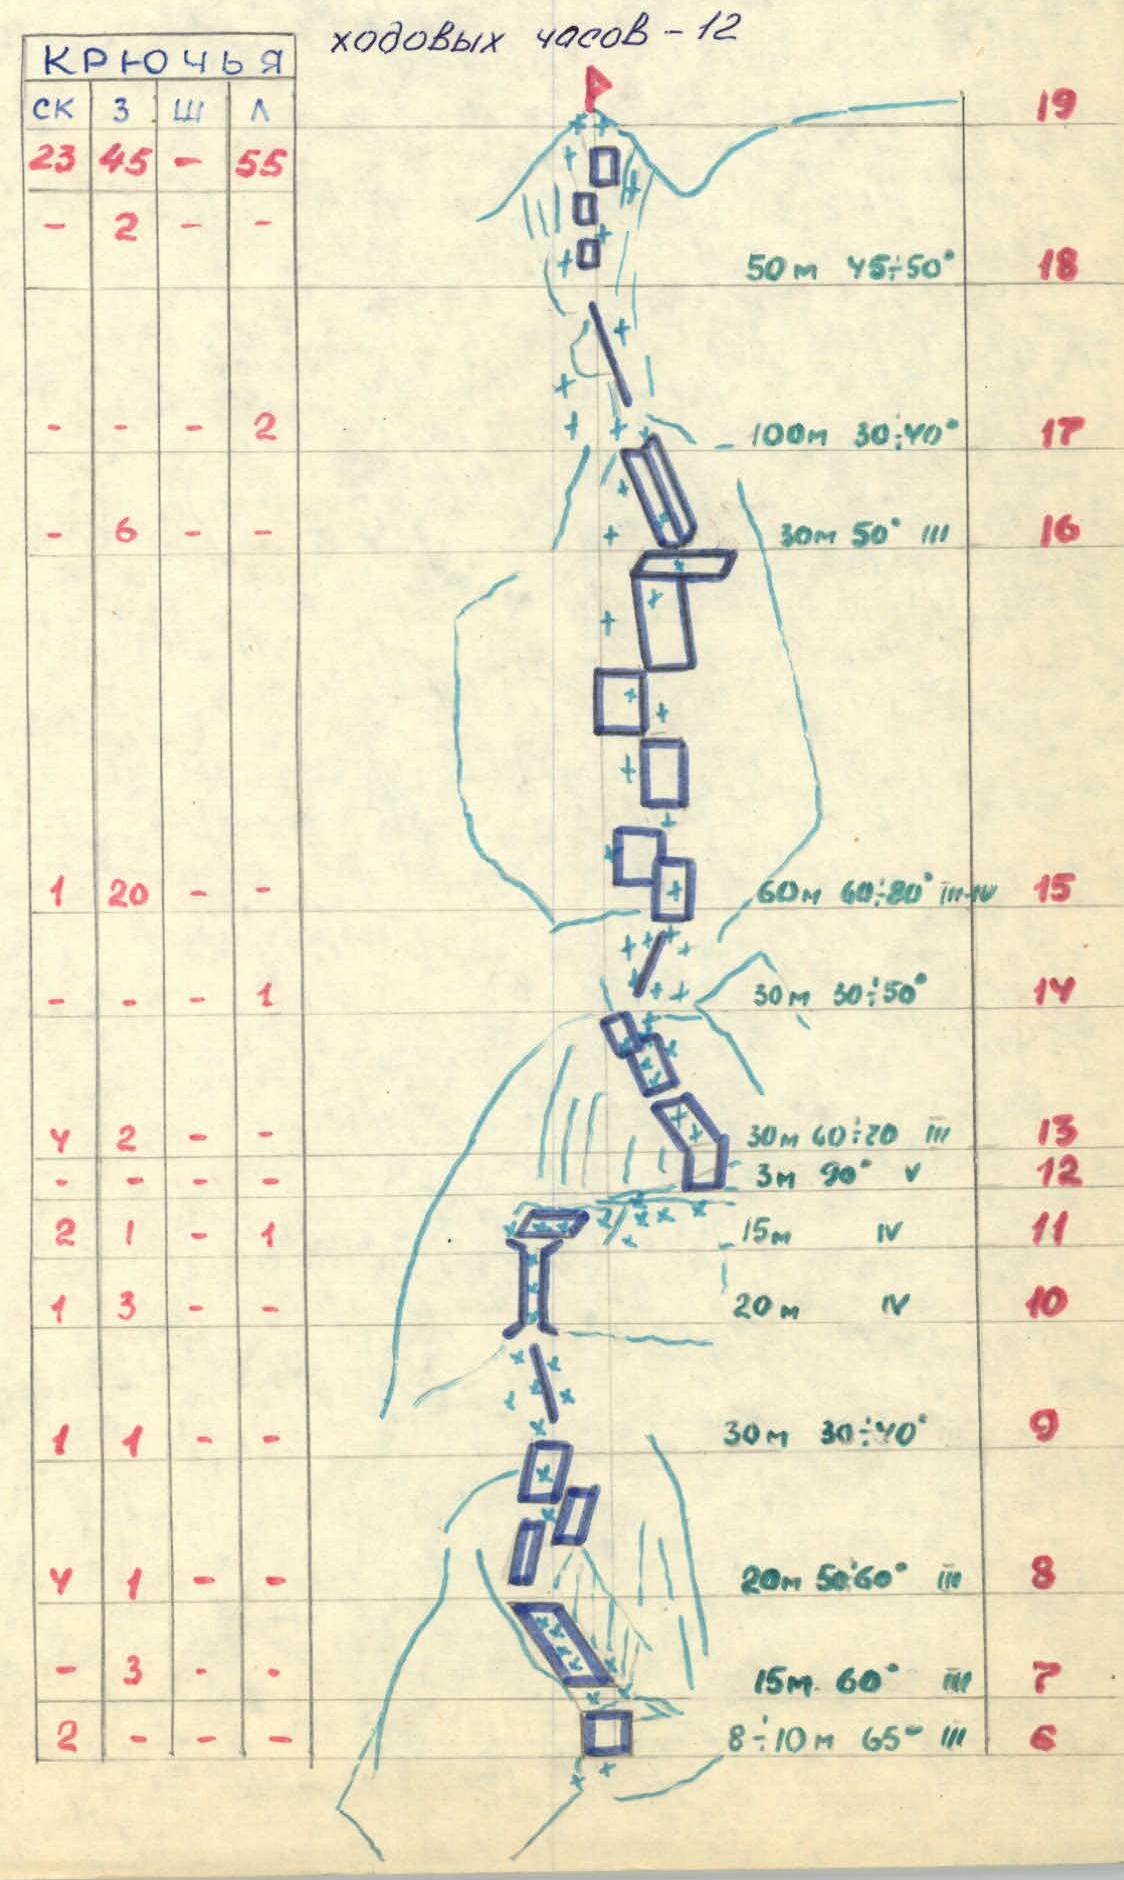 ходовых часов - 12
КРЮЧЬЯ
СК З Ш Л
19
23 45 - 55
- 2 - - 50м 45÷50° 18
- - - 2 100м 30÷40° 17
- 6 - - 30м 50° III 16
1 20 - - 60м 60÷80° III-IV 15
- - - 1 30м 30÷50° 14
4 2 - - 30м 60÷70 III 13
- - - - 3м 90° V 12
2 1 - 1 15м IV 11
1 3 - - 20м IV 10
1 1 - - 30м 30÷40° 9
4 1 - - 20м 50÷60° III 8
- 3 - - 15м 60° III 7
2 - - - 8÷10м 65° III 6